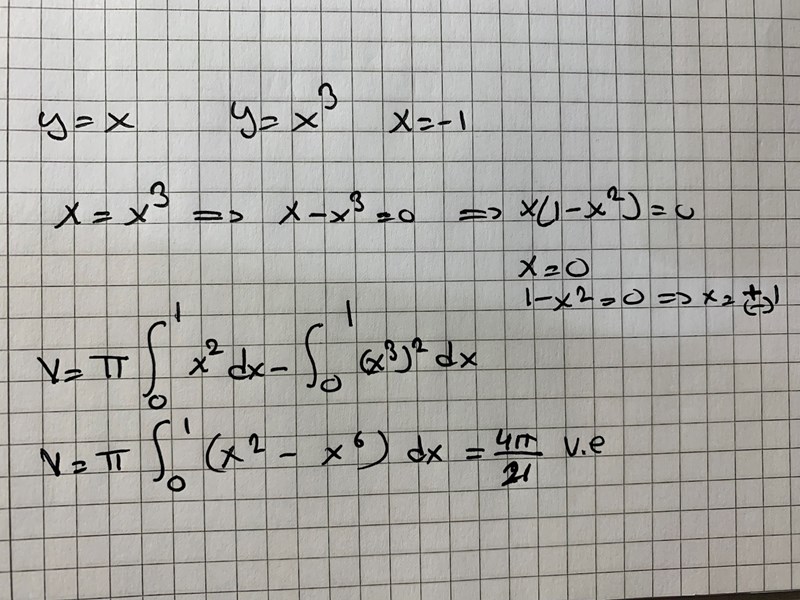 y = x y = x³ x = -1
x = x³ => x - x³ = 0 => x(1 - x²) = 0
x = 0
1 - x² = 0 => x = ± 1
V = π ∫₀¹ x² dx - ∫₀¹ (x³)² dx
V = π ∫₀¹ (x² - x⁶) dx = 4π/21 v.e